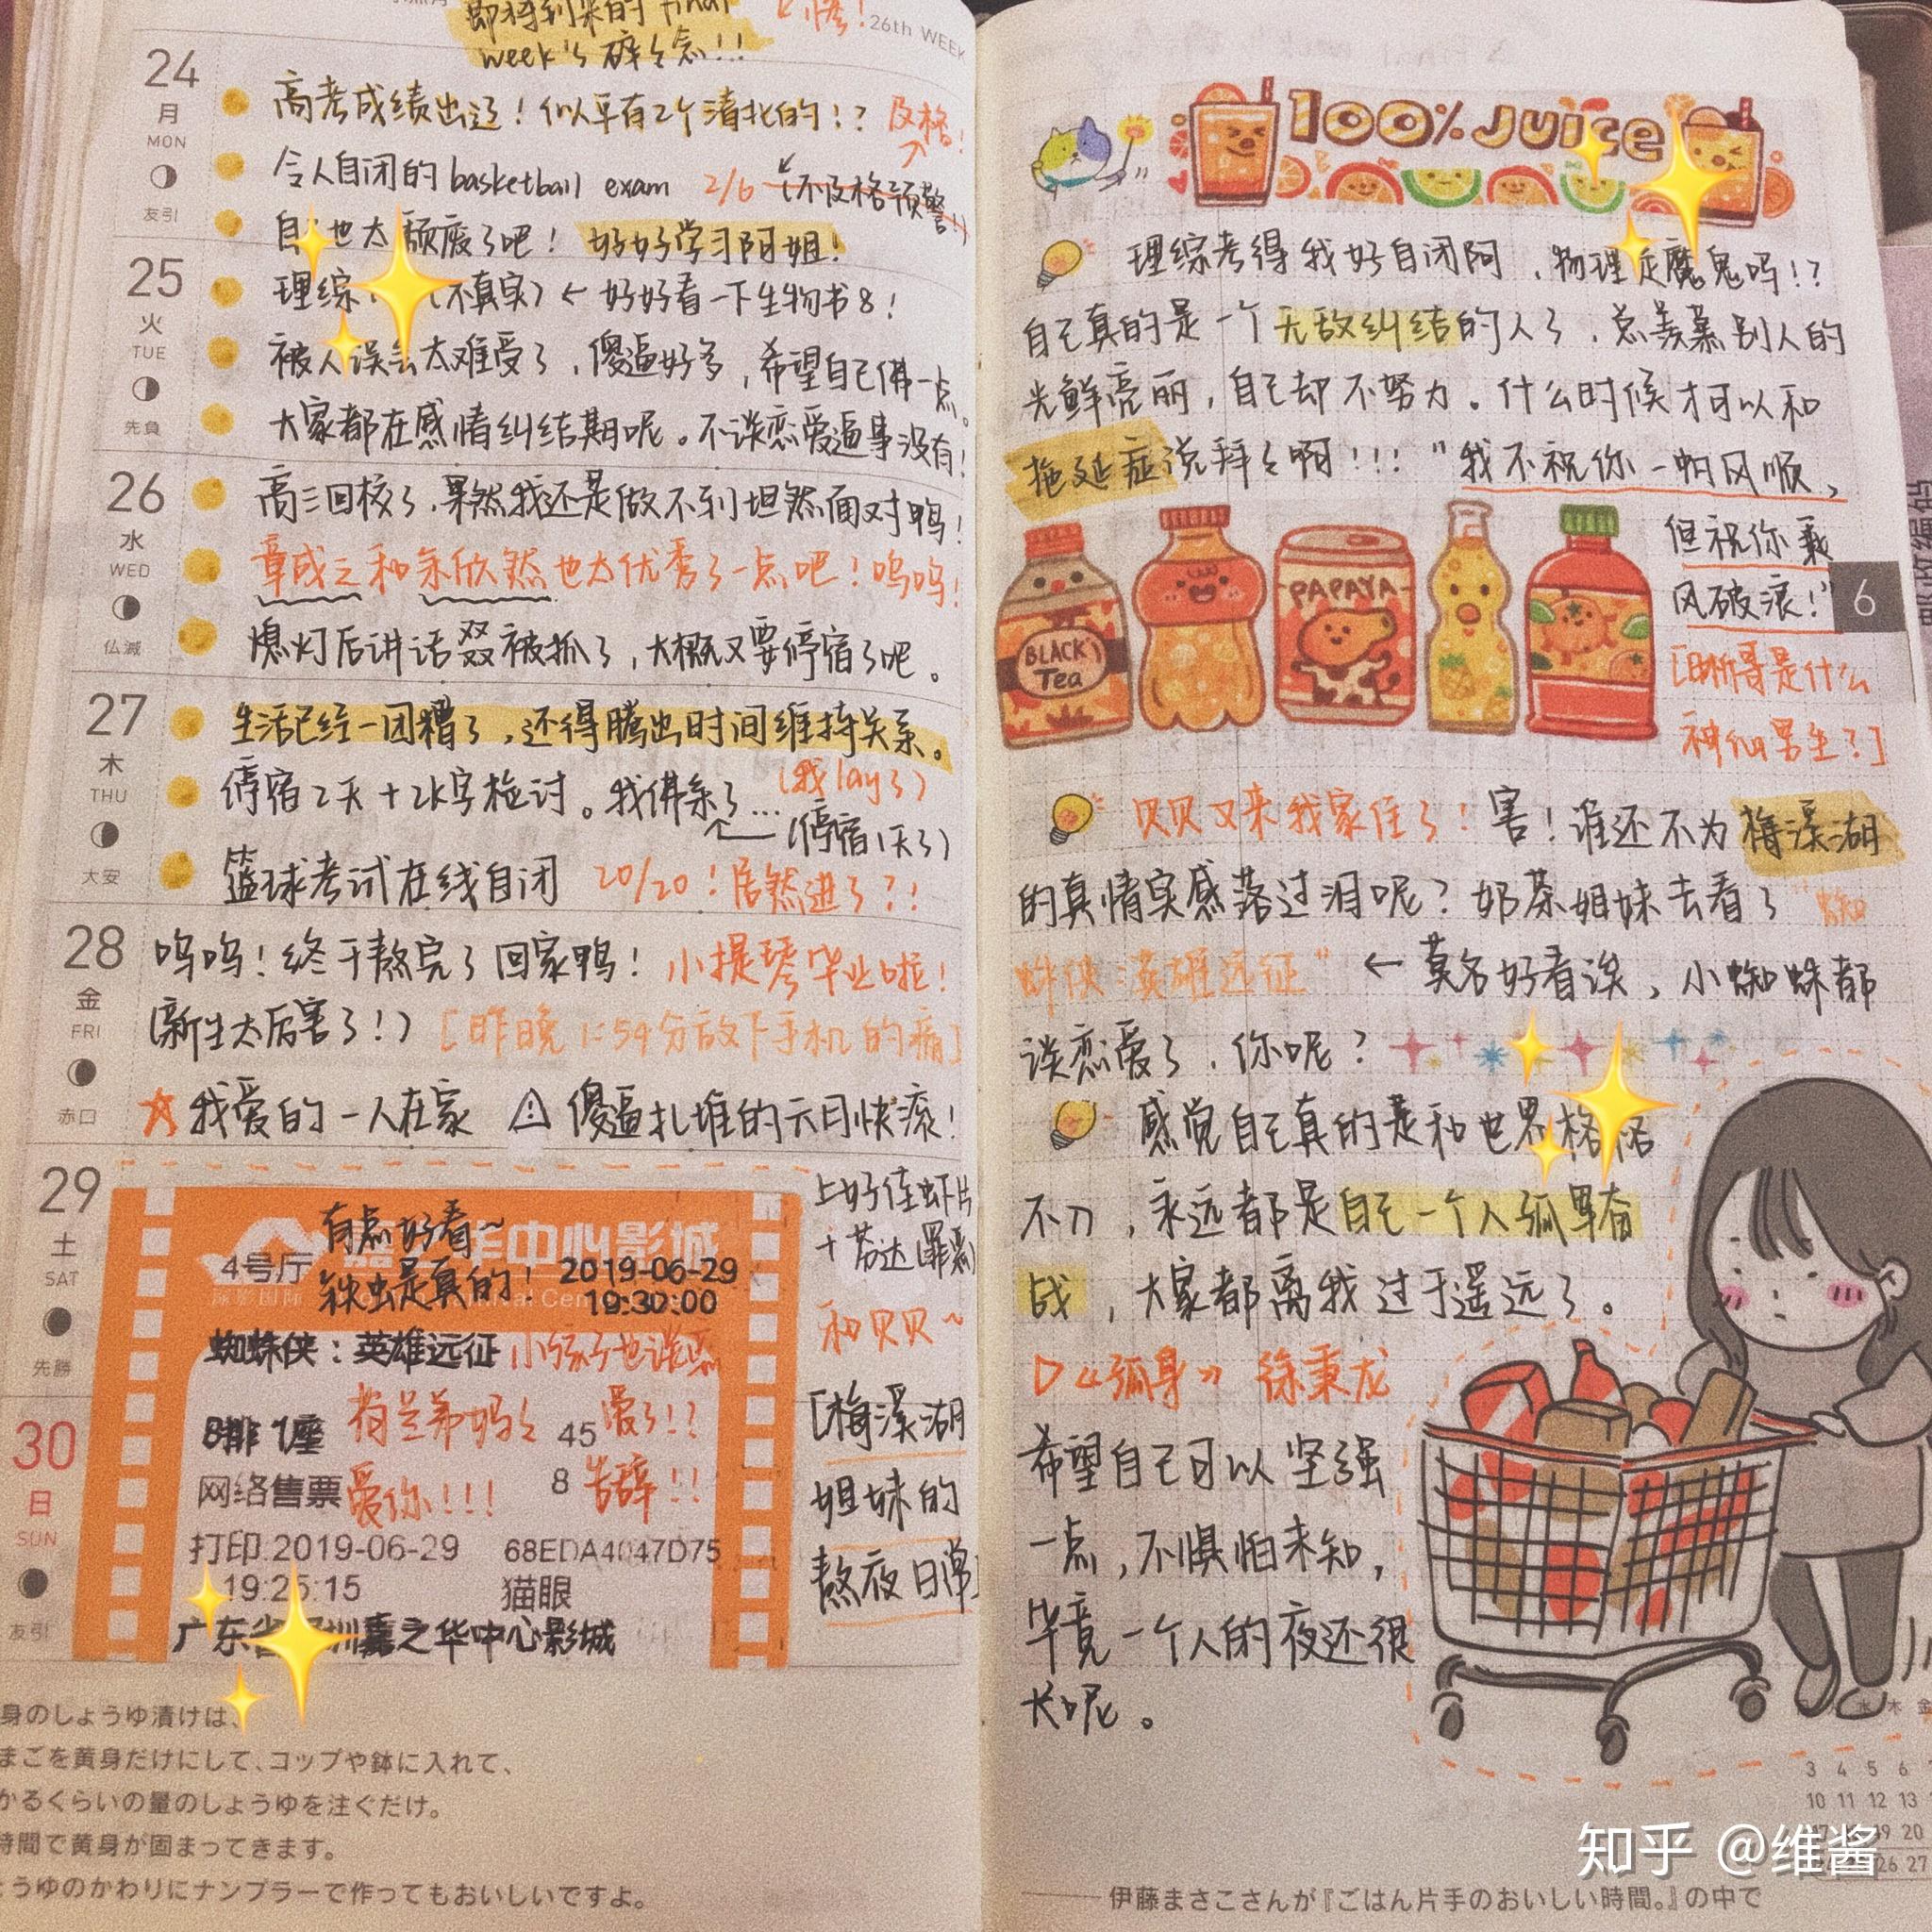 即将到来的final
week's 碎々念!!!
26th WEEK
24
月
MON
友引
高考成绩出过!似乎有2个清北的!?
及格!
令人自闭的basketball exam 2/6 (不及格预警!)
也太颓废了吧! 好好学习阿姐!
25
火
TUE
先負
理综 (不真实) ← 好好看一下生物书8!
被人误会太难受了,傻逼好多,希望自己佛一点。
大家都在感情纠结期呢。不谈恋爱逼事没有!
26
水
WED
仏滅
高三回校了.果然我还是做不到坦然面对鸭!
章成之和余欣然也太优秀了一点吧!呜呜!
熄灯后讲话双双被抓了,大概又要停宿了吧。
27
木
THU
大安
生活已经一团糟了,还得腾出时间维持关系。
停宿2天+2K字检讨。我佛系了...
(我lay了)
(停宿1天了)
篮球考试在线自闭 20/20!居然进了?!
28
金
FRI
赤口
呜呜!终于熬完了回家鸭!小提琴毕业啦!
(新生太厉害了!) [昨晚1:54分放下手机的痛]
☆我爱的一人在家 ⚠傻逼扎堆的六月快滚!
29
土
SAT
先勝
有点好看~
中心影城
4号厅
2019-06-29
19:30:00
蜘蛛侠:英雄远征
小孩子也谈恋
8排 1座
荷兰弟妈々 45 爱了!?
网络售票 爱你!!! 8 告辞!!
打印:2019-06-29 68EDA4047D75
19:25:15 猫眼
广东省深圳嘉之华中心影城
上好佳虾片
+芬达(罪恶)
和贝贝~
[梅溪湖
姐妹的
熬夜日常]
30
日
SUN
友引
身のしょうゆ漬けは、
まごを黄身だけにして、コップや鉢に入れて、
かるくらいの量のしょうゆを注ぐだけ。
時間で黄身が固まってきます。
ょうゆのかわりにナンプラーで作ってもおいしいですよ。
100% Juice
理综考得我好自闭阿,物理是魔鬼吗!?
自己真的是一个无敌纠结的人了,总羡慕别人的
光鲜亮丽,自己却不努力。什么时候才可以和
拖延症说拜々啊!!!"我不祝你一帆风顺,
但祝你乘
风破浪!"
6
[晰哥是什么
神仙男生?]
BLACK
Tea
PAPAYA
贝贝又来我家住了!害!谁还不为梅溪湖
的真情实感落过泪呢?奶茶姐妹去看了"蜘
蛛侠:英雄远征" ← 莫名好看诶,小蜘蛛都
谈恋爱了,你呢?
感觉自己真的是和世界格格
不入,永远都是自己一个人孤军奋
战,大家都离我过于遥远了。
▷《孤身》 徐秉龙
希望自己可以坚强
一点,不惧怕未知,
毕竟一个人的夜还很
长呢。
水 木 金
3 4 5 6
10 11 12 13
知乎 @维酱
伊藤まさこさんが『ごはん片手のおいしい時間。』の中で